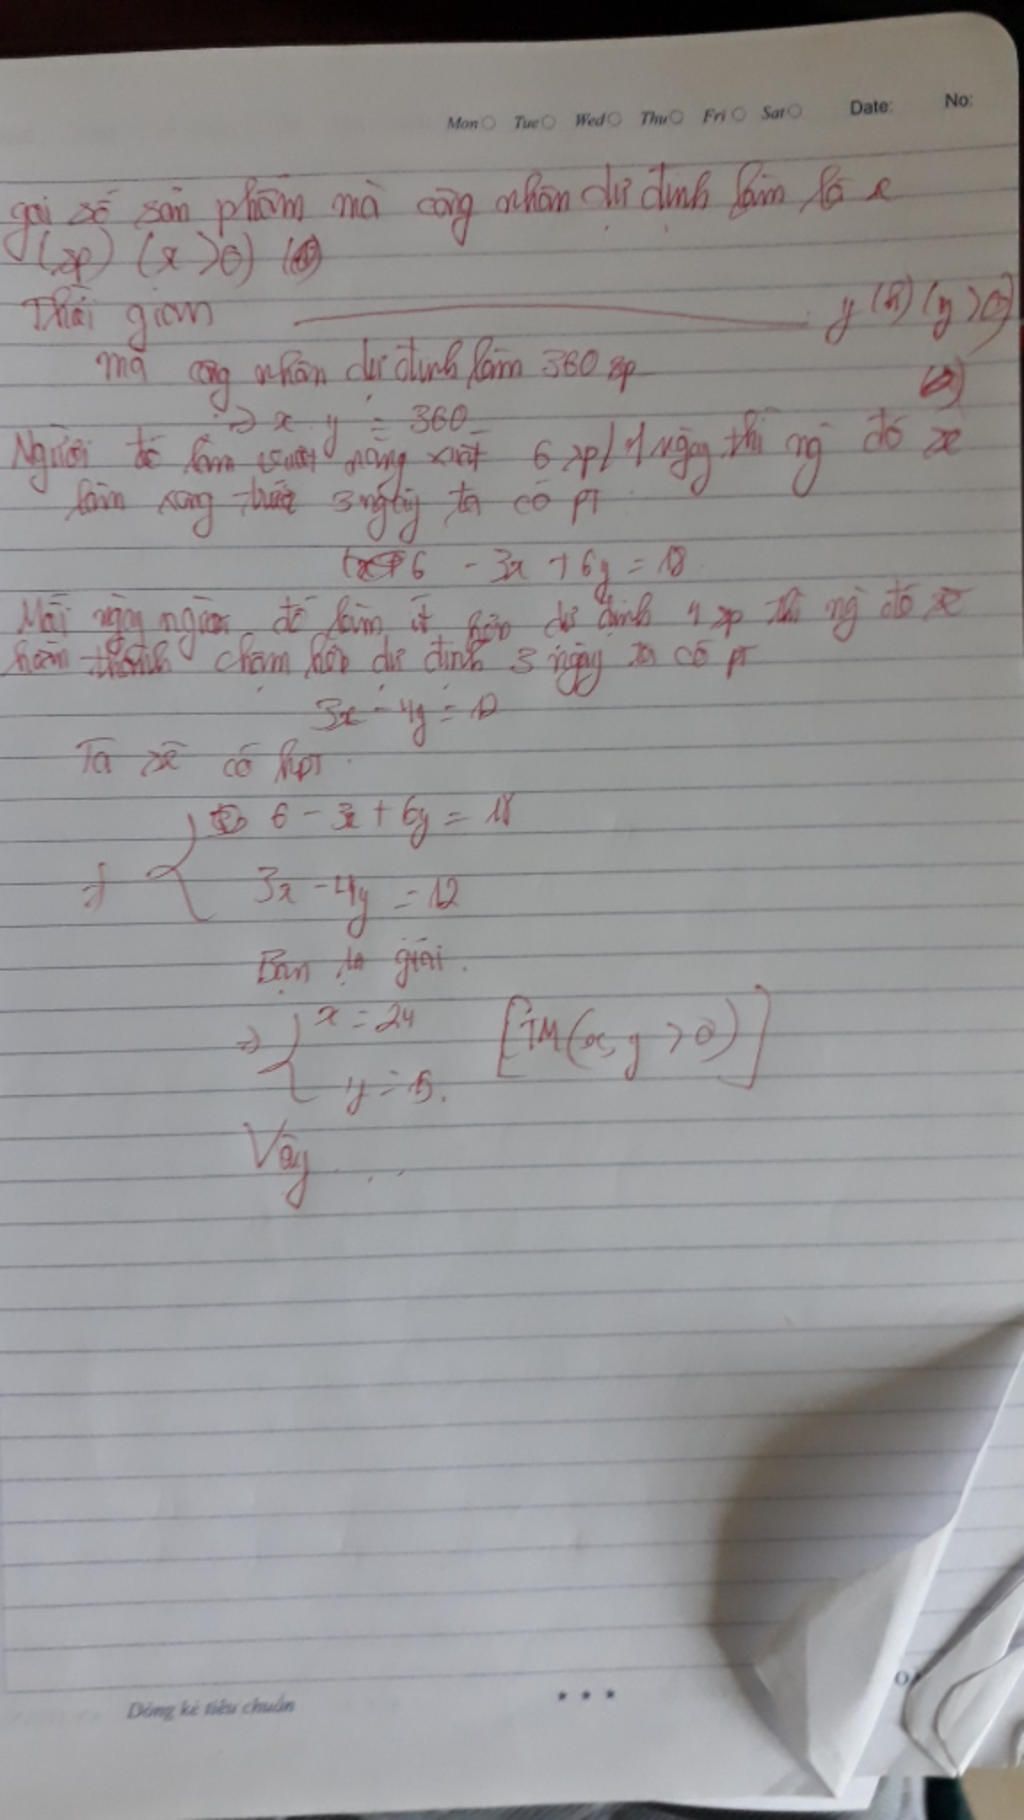 Mon Tue Wed Thu Fri Sat Date: No:
gọi số sản phẩm mà công nhân dự định làm là x
(sp) (x > 0)
Thời gian y (h) (y > 0)
mà công nhân dự định làm 360 sp
=> x . y = 360
Người đó làm vượt năng xuất 6 sp/1 ngày thì ng đó sẽ
làm xong trước 3 ngày ta có PT
6 - 3x + 6y = 18
Mỗi ngày người đó làm ít hơn dự định 4 sp thì ng đó sẽ
hoàn thành chậm hơn dự định 3 ngày ta có PT
3x - 4y = 12
Ta sẽ có hpt
6 - 3x + 6y = 18
3x - 4y = 12
Bạn tự giải.
=> x = 24 [TM (x, y > 0)]
y = 15.
Vậy ...
Dòng kẻ tiêu chuẩn ***